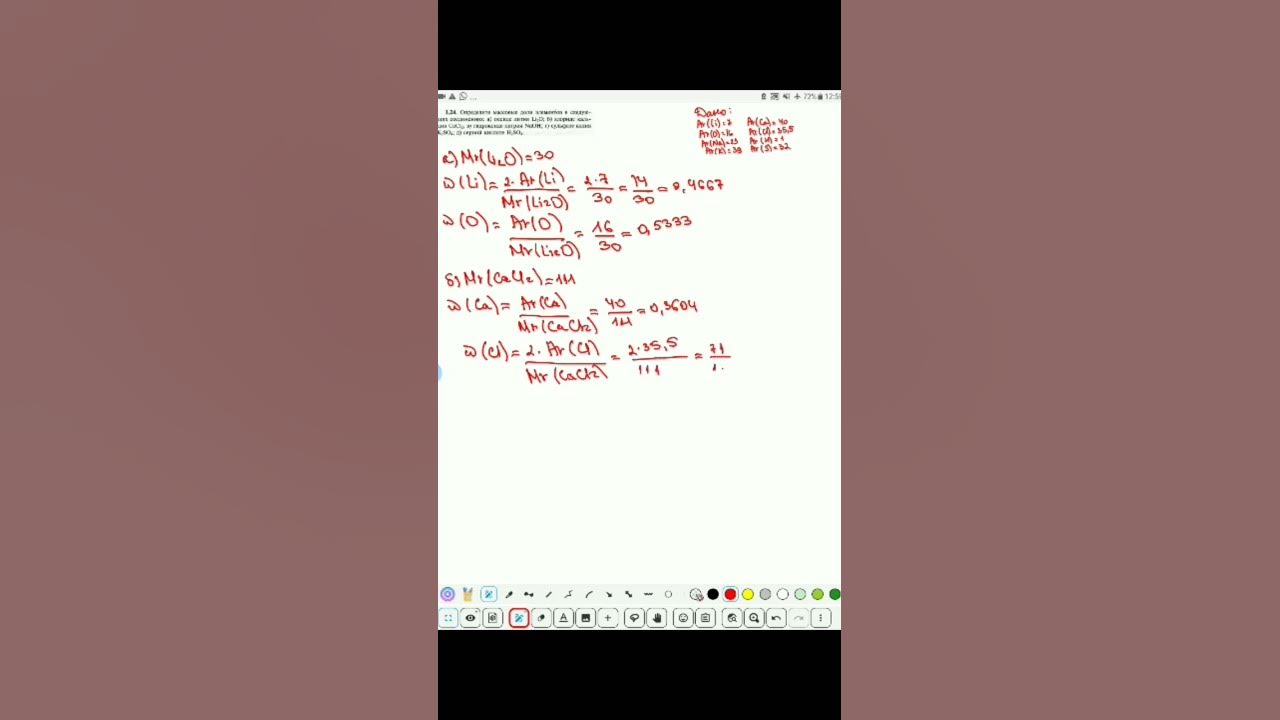 72% 12:59
1.24. Определите массовые доли элементов в следую-
щих соединениях: а) оксиде лития Li₂O; б) хлориде каль-
ция CaCl₂; в) гидроксиде натрия NaOH; г) сульфате калия
K₂SO₄; д) серной кислоте H₂SO₄.
Дано:
Ar(Li)=7 Ar(Ca)=40
Ar(O)=16 Ar(Cl)=35,5
Ar(Na)=23 Ar(H)=1
Ar(K)=39 Ar(S)=32
а) Mr(Li₂O)=30
ω(Li)= 2·Ar(Li)/Mr(Li₂O) = 2·7/30 = 14/30 = 0,4667
ω(O)= Ar(O)/Mr(Li₂O) = 16/30 = 0,5333
б) Mr(CaCl₂)=111
ω(Ca)= Ar(Ca)/Mr(CaCl₂) = 40/111 = 0,3604
ω(Cl)= 2·Ar(Cl)/Mr(CaCl₂) = 2·35,5/111 = 71/1